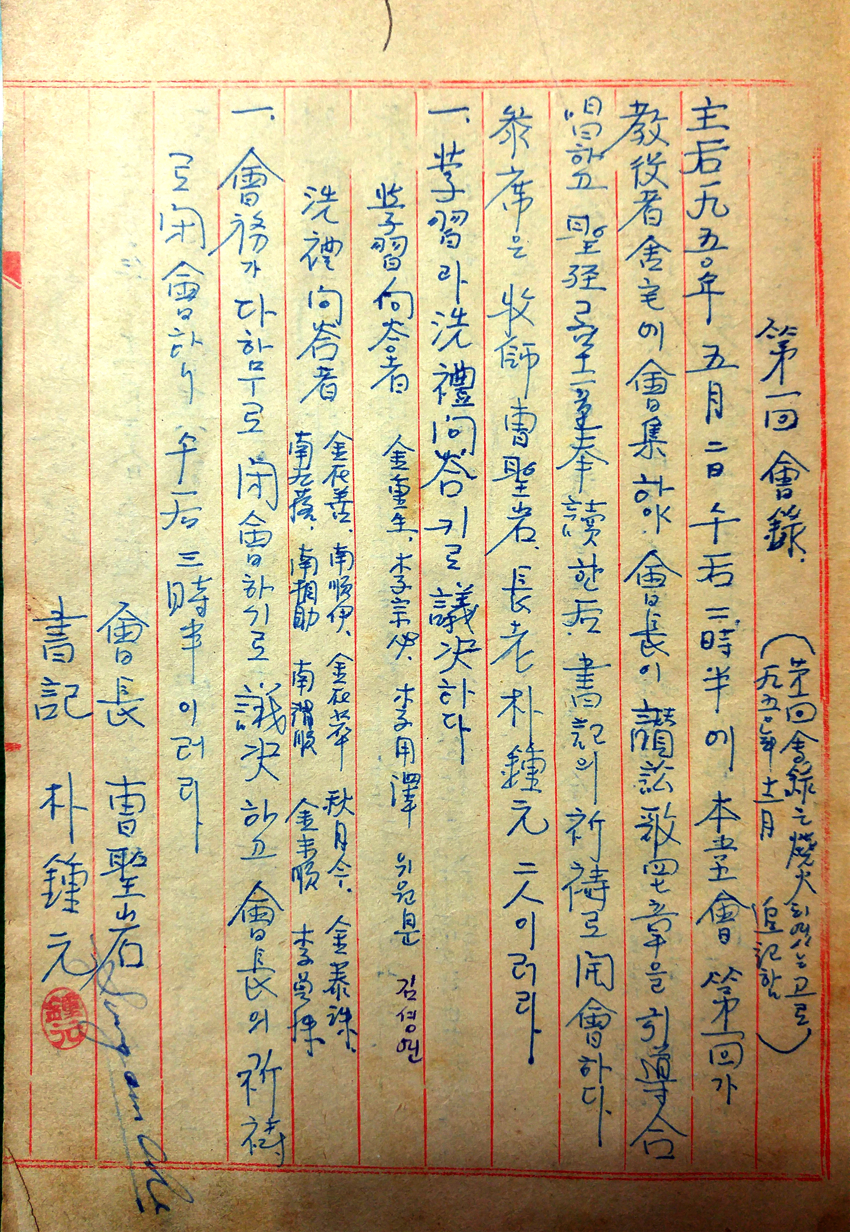 第一回 會錄.
(第一回會錄은 燒火되엿是 고로,
一九五〇年 十二月 追記함)
主后一九五〇年 五月 二日 午后 三時半에 本堂會 第一回가
敎役者舍宅에 會集하야 會長이 讚頌歌四七章을 引導合
唱하고 聖經 章奉讀한后 書記의 祈禱로 開會하다.
參席은 牧師 曺聖岩, 長老 朴鍾元 二人이러라.
一. 學習과 洗禮問答키로 議決하다
學習問答者 金重生, 李宗, 李用澤 김성연
洗禮問答者 金在善, 南順伊, 金在華 秋月今, 金泰珠,
南, 南相助 南順 金末順 李
一. 會務가 다함무로 閉會하기로 議決하고 會長의 祈禱
로 閉會하니 午后 三時半이러라
會長 曺聖岩
書記 朴鍾元
鍾元